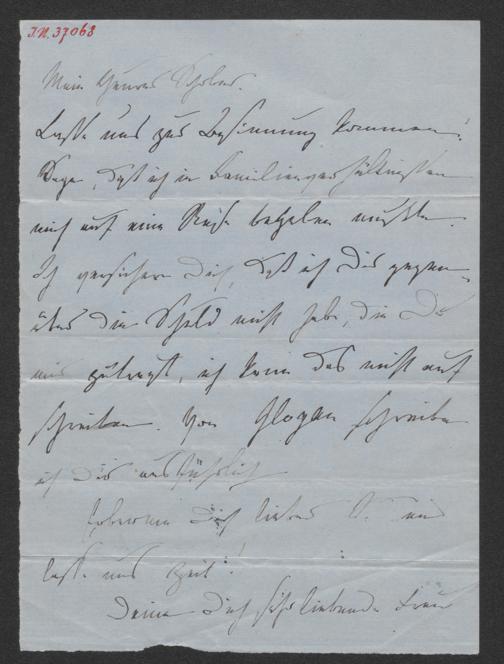 I.N. 37068
Mein theures Schober.
Lasse uns zur Besinnung kommen!
Sage, daß ich in Familienverhältnissen
mich auf eine Reise begeben mußte.
Ich versichere Dich, daß ich Dir gegen-
über die Schuld nicht habe, die Du
mir zuträgst, ich kann das nicht auf
schreiben. Von Glogau schreibe
ich Dir ausführlich
Erbarme Dich liebes und
lasse uns Zeit!
Deine Dich sehr liebende Frau